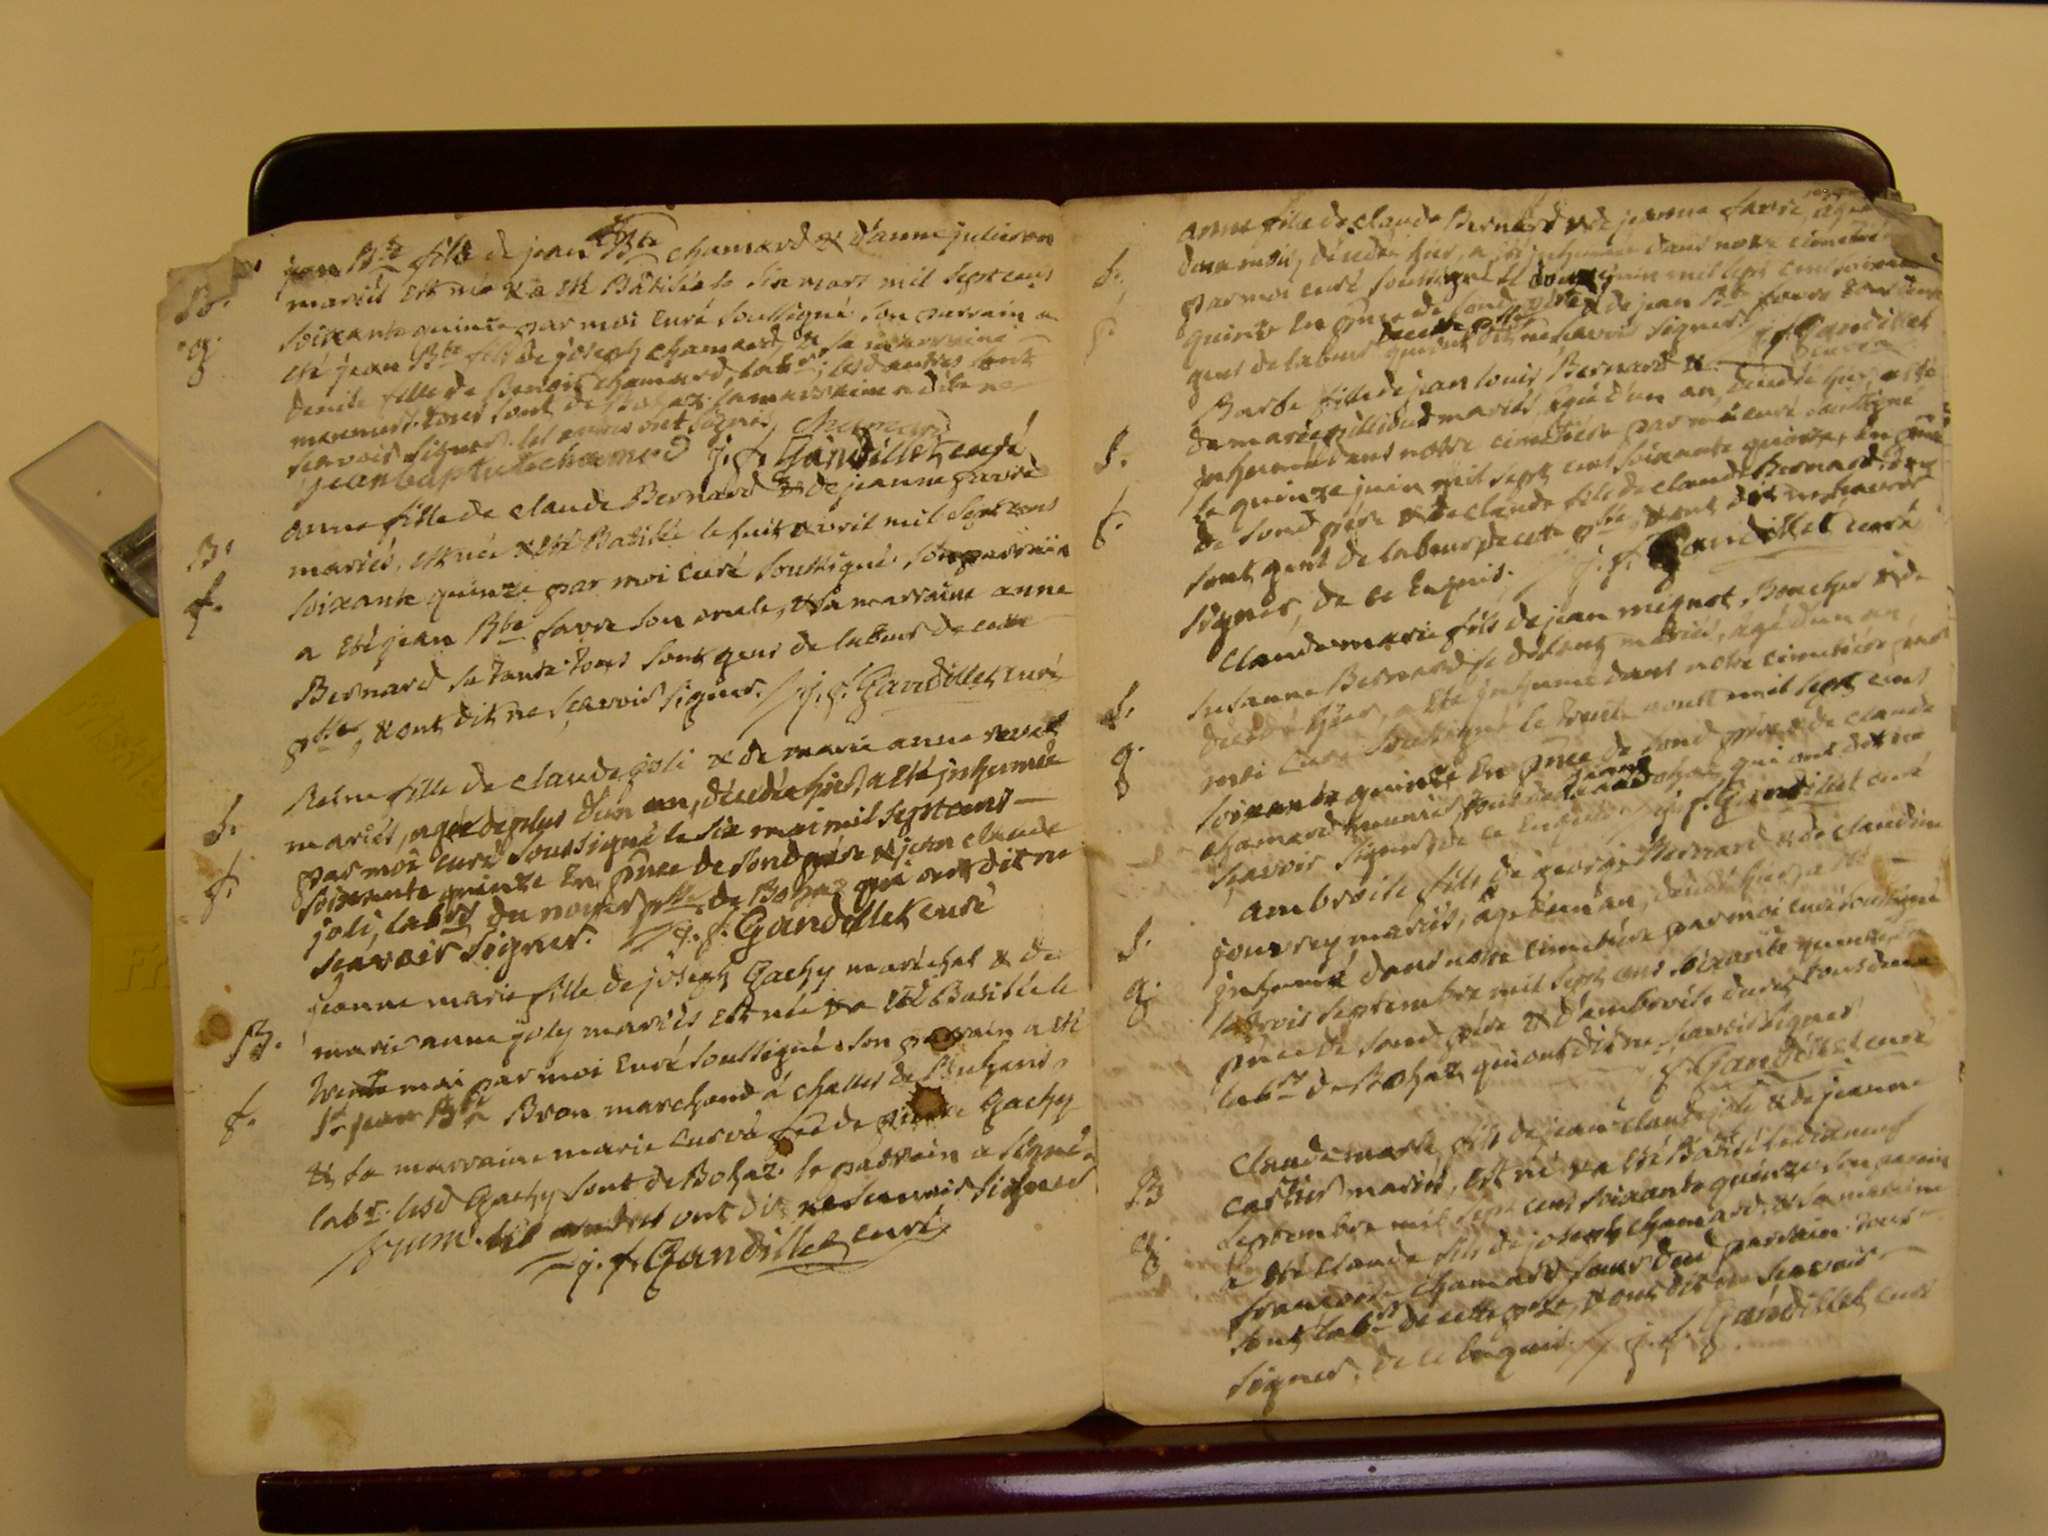 B. jean Bte fils de jean Bte chamard & d'anne julieron
mariés est né & a été Batisé le six mars mil sept cens
g. soixante quinze par moi curé soussigné son parrain a
été jean Bte fils de joseph chamard, & sa marraine
denise fille de Benoit chamard, labr
tous sont de Bohaz. la marraine a dit ne
scavoir signer. les autres ont signés, chamard
jean baptiste chamard j. f. Gandillet curé
anne fille de claude Bernard & de jeanne favre
B. mariés, est née & été Batisée le huit avril mil sept cens
f. soixante quinze par moi curé soussigné. son parrain
a été jean Bte favre son oncle, & sa marraine anne
Bernard sa tante. tous sont gens de labeur de cette
psse, & ont dit ne scavoir signer. j. f. Gandillet, curé
Reine fille de claude joli & de marie anne revel
S. mariés, agée de plus d'un an, décédée hier, a été inhumée
par moi curé soussigné le six mai mil sept cens
f. soixante quinze En pnce de sond père & jean claude
joli, labrs de Bohaz qui ont dit ne
scavoir signer. j. f. Gandillet curé
jeanne marie fille de joseph Gachy maréchal & de
B. marie anne joly mariés est née & a été Batisée le
trente mai par moi curé soussigné. son parrain a été
f. Sr jean Bte Bron marchand à challes de
& sa marraine marie de pierre Gachy
labr. lesd Gachy sont de Bohaz. le parrain a signé
Brun. les autres ont dit ne scavoir signer
j. f. Gandillet curé
anne fille de claude Bernard & de jeanne favre, agée
S. deux mois, décédée hier, a été inhumée dans notre cimetière
par moi curé soussigné le douze juin mil sept cens soixante
f. quinze En pnce de sond père & de jean Bte favre tous deux
gens de labeur de cette psse qui ont dit ne scavoir signer. j. f. Gandillet
curé
Barbe fille de jean louis Bernard &
de marie mariés, agée d'un an, décédée hier, a été
S. inhumée dans notre cimetière par moi curé soussigné
le quinze juin mil sept cens soixante quinze, En pnce
f. de sond père & de claude fils de claude Bernard. tous
sont gens de labeur de cette psse & ont dit ne scavoir
signer, de ce Enquis. j. f. Gandillet curé
claude marie fils de jean mignot Boucher & de
susanne Bernard mariés, agé d'un an
S. décédé hyer, a été inhumé dans notre cimetière par
moi curé soussigné le trente aoust mil sept cens
g. soixante quinze En pnce de sond père & de claude
chamard Bohaz qui ont dit ne
scavoir signer de ce Enquis. j. f. Gandillet curé
ambroise fils de george Bernard & de claudine
S. gouvrey mariés, agé d'un an, décédé hier, a été
inhumé dans notre cimetière par moi curé soussigné
g. le trois septembre mil sept cens soixante quinze, En
pnce de sond père & d'ambroise tous deux
labrs de Bohaz, qui ont dit ne scavoir signer
j. f. Gandillet curé
claude marie fils de jean claude joli & de jeanne
B cartier mariés, est né & a été Batisé le dixneuf
septembre mil sept cens soixante quinze son parrain
g. a été claude fils de joseph chamard & sa marraine
françoise chamard soeur dud parrain. tous
sont labrs de cette psse, & ont dit ne scavoir
signer, de ce Enquis. j. f. Gandillet curé